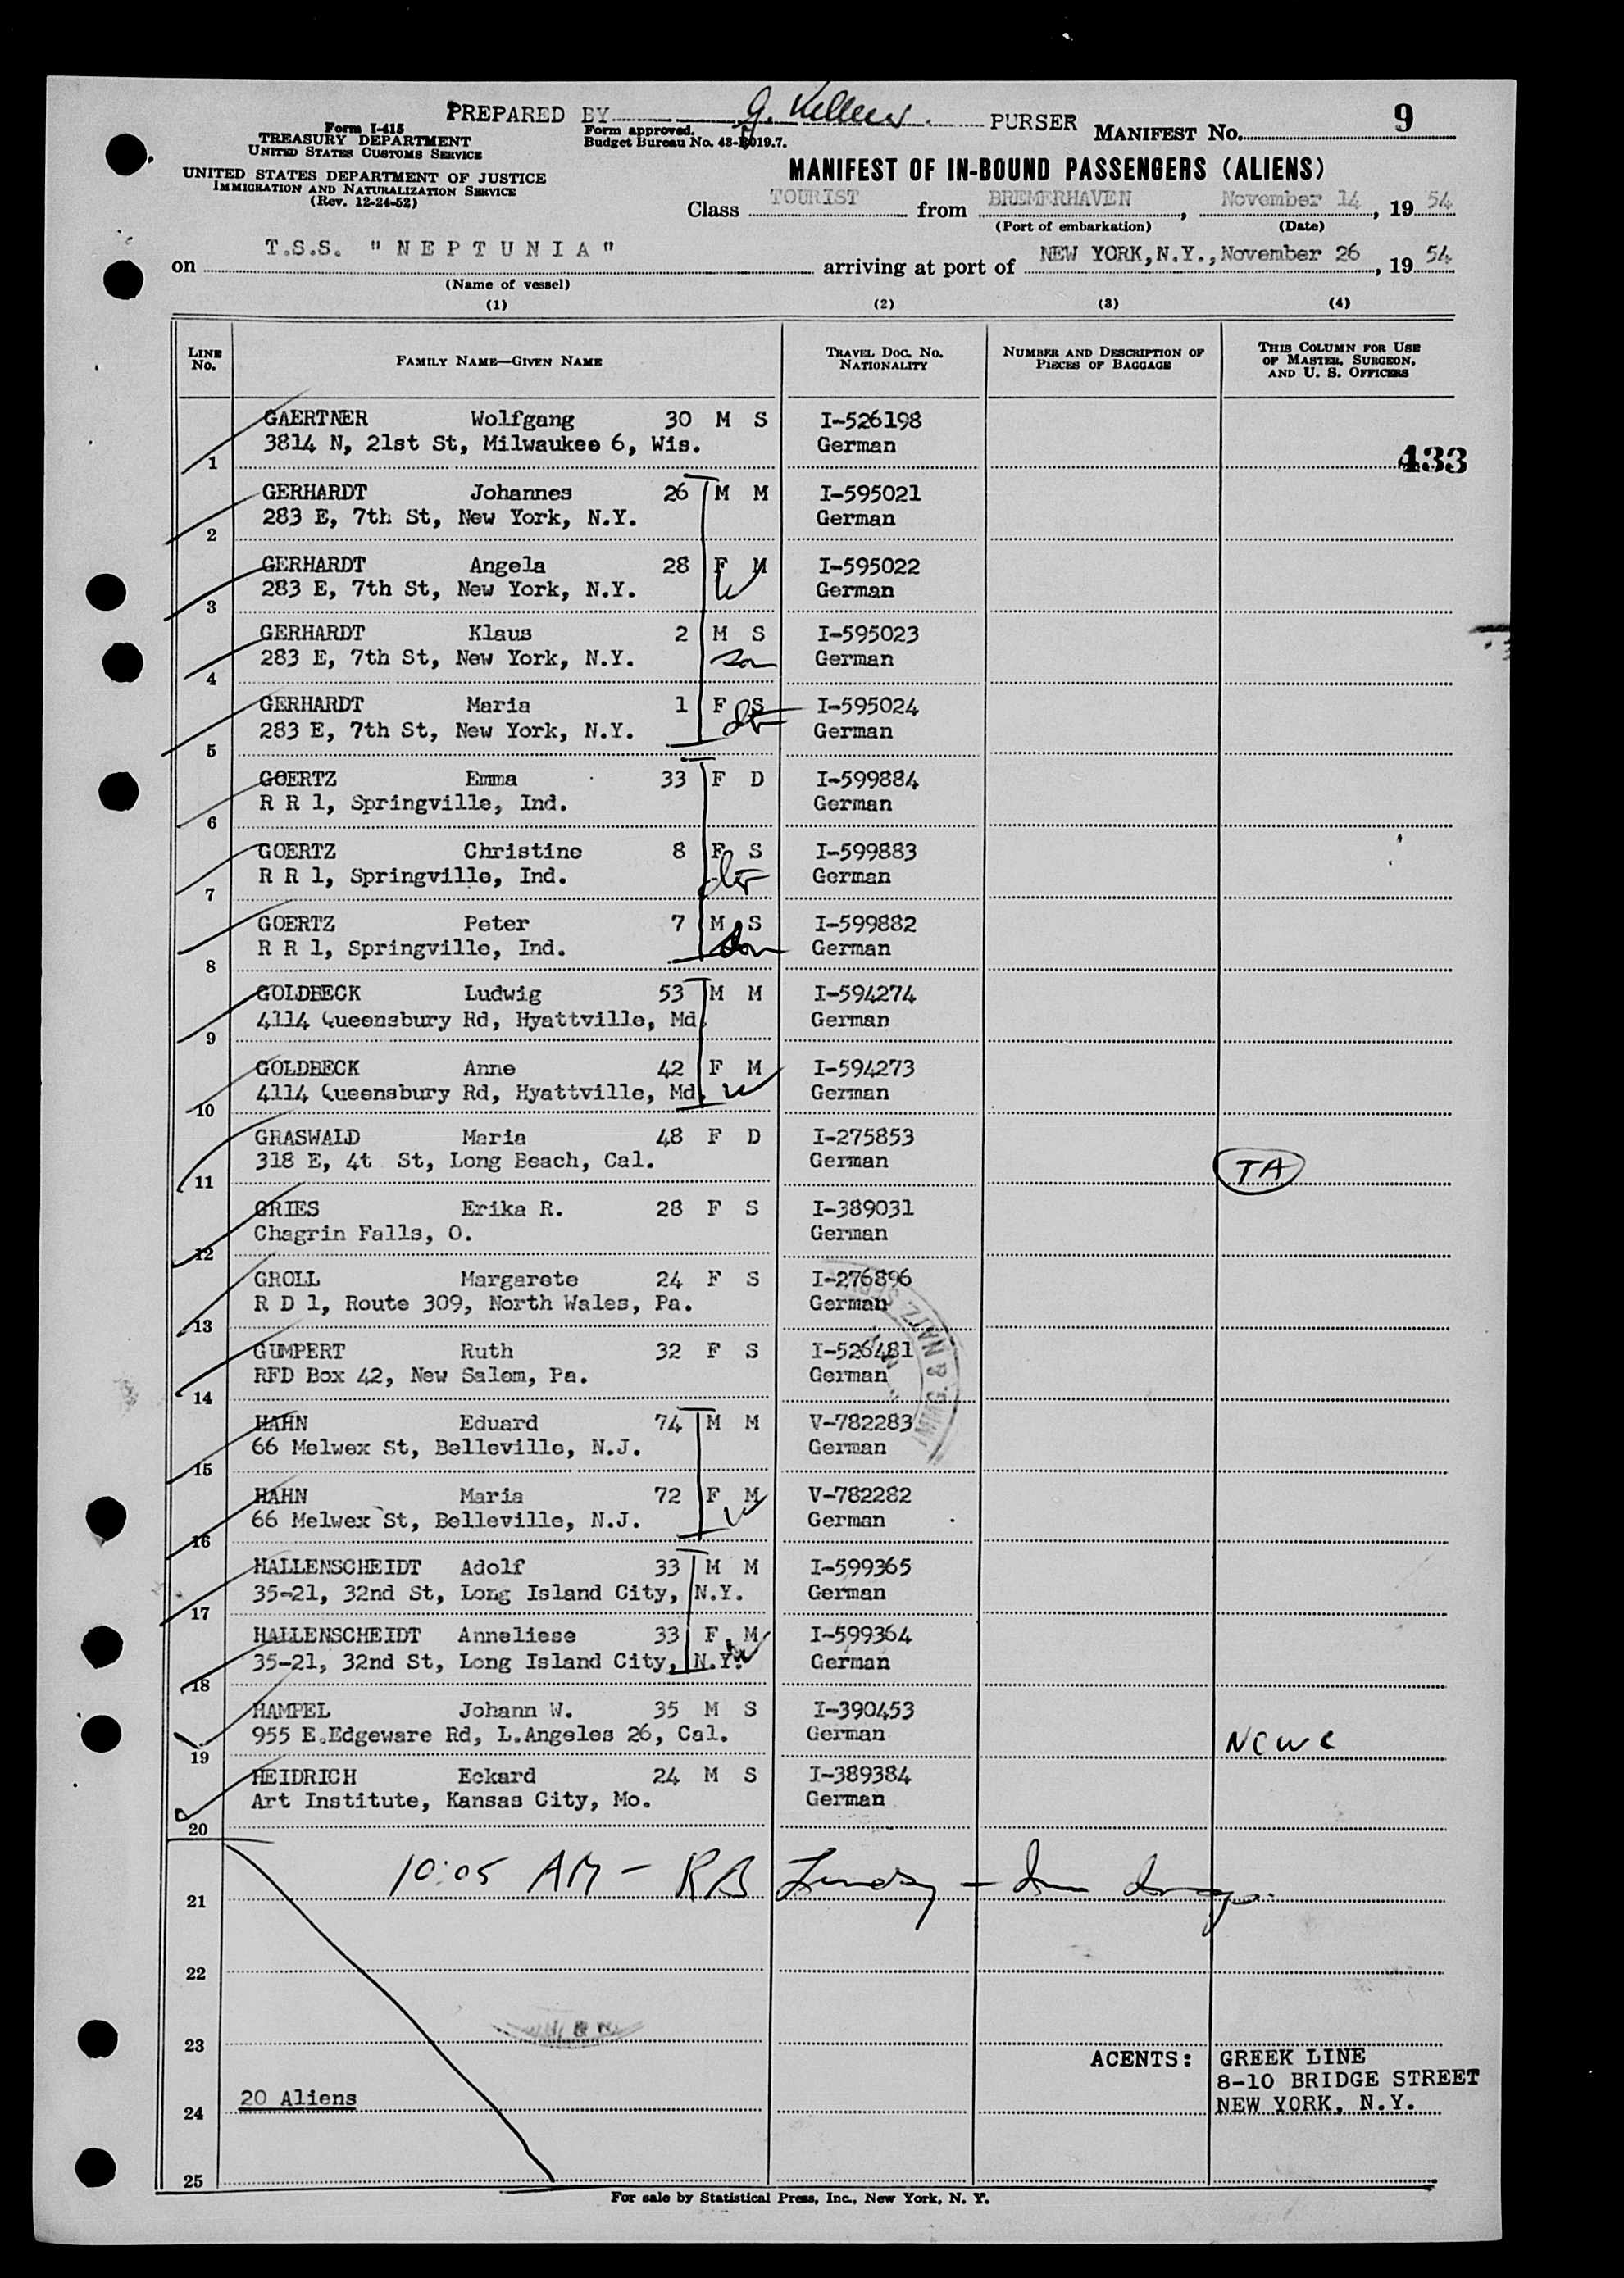 PREPARED BY G. Kellers PURSER MANIFEST No. 9
Form I-415
TREASURY DEPARTMENT
UNITED STATES CUSTOMS SERVICE
Form approved.
Budget Bureau No. 43-R019.7.
UNITED STATES DEPARTMENT OF JUSTICE
IMMIGRATION AND NATURALIZATION SERVICE
(Rev. 12-24-52)
MANIFEST OF IN-BOUND PASSENGERS (ALIENS)
Class TOURIST from BREMERHAVEN, November 14, 1954
(Port of embarkation) (Date)
on T.S.S. "NEPTUNIA" arriving at port of NEW YORK,N.Y.,November 26, 1954
(Name of vessel)
(1) (2) (3) (4)
LINE No. FAMILY NAME—GIVEN NAME TRAVEL DOC. NO. NATIONALITY NUMBER AND DESCRIPTION OF PIECES OF BAGGAGE THIS COLUMN FOR USE OF MASTER, SURGEON, AND U. S. OFFICERS
GAERTNER Wolfgang 30 M S I-526198
3814 N, 21st St, Milwaukee 6, Wis. German
1 433
GERHARDT Johannes 26 M M I-595021
283 E, 7th St, New York, N.Y. German
2
GERHARDT Angela 28 F M I-595022
283 E, 7th St, New York, N.Y. W German
3
GERHARDT Klaus 2 M S I-595023
283 E, 7th St, New York, N.Y. son German
4
GERHARDT Maria 1 F S I-595024
283 E, 7th St, New York, N.Y. dtr German
5
GOERTZ Emma 33 F D I-599884
R R 1, Springville, Ind. German
6
GOERTZ Christine 8 F S I-599883
R R 1, Springville, Ind. dtr German
7
GOERTZ Peter 7 M S I-599882
R R 1, Springville, Ind. son German
8
GOLDBECK Ludwig 53 M M I-594274
4114 Queensbury Rd, Hyattville, Md. German
9
GOLDBECK Anne 42 F M I-594273
4114 Queensbury Rd, Hyattville, Md. W German
10
GRASWALD Maria 48 F D I-275853
318 E, 4t St, Long Beach, Cal. German TA
11
GRIES Erika R. 28 F S I-389031
Chagrin Falls, O. German
12
GROLL Margarete 24 F S I-276896
R D 1, Route 309, North Wales, Pa. German
13
GUMPERT Ruth 32 F S I-526481
RFD Box 42, New Salem, Pa. German
14
IMMIG. & NATZ. SERV.
HAHN Eduard 74 M M V-782283
66 Melwex St, Belleville, N.J. German
15
HAHN Maria 72 F M V-782282
66 Melwex St, Belleville, N.J. W German
16
HALLENSCHEIDT Adolf 33 M M I-599365
35-21, 32nd St, Long Island City, N.Y. German
17
HALLENSCHEIDT Anneliese 33 F M I-599364
35-21, 32nd St, Long Island City, N.Y. W German
18
HAMPEL Johann W. 35 M S I-390453
955 E.Edgeware Rd, L.Angeles 26, Cal. German NCWC
19
HEIDRICH Eckard 24 M S I-389384
Art Institute, Kansas City, Mo. German
20
10:05 AM - RB Lindsy -
21
22
23
ACENTS: GREEK LINE
8-10 BRIDGE STREET
20 Aliens NEW YORK, N.Y.
24
25
For sale by Statistical Press, Inc., New York, N. Y.